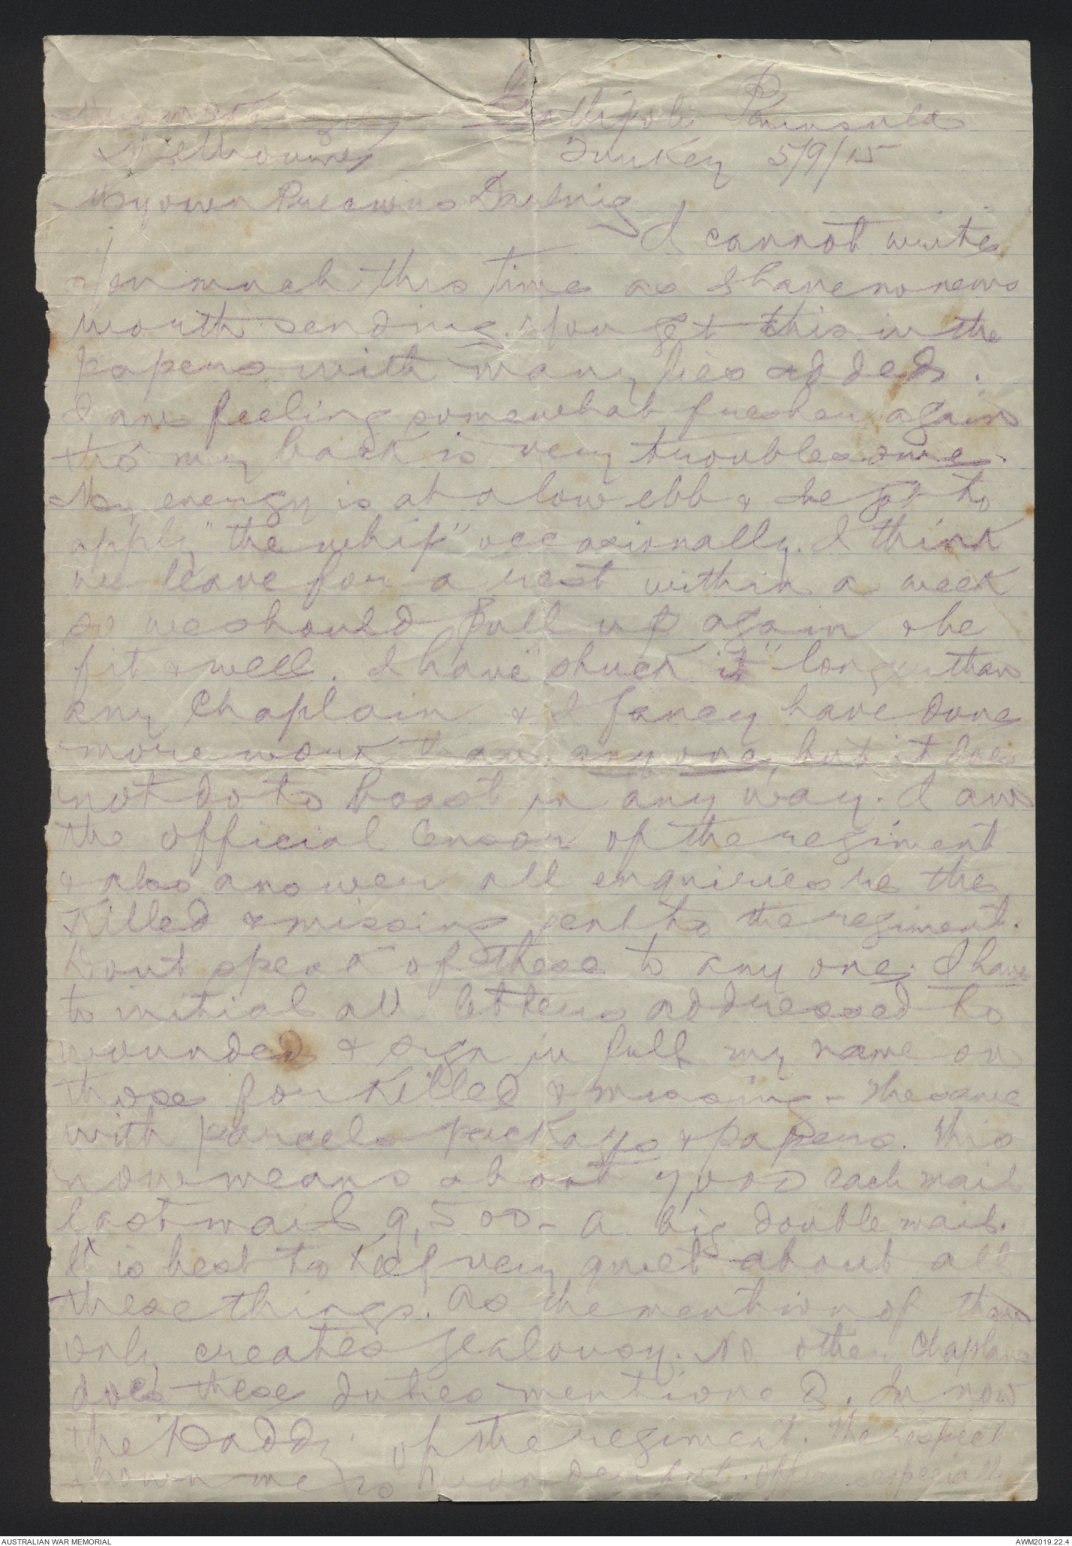 Gallipoli Peninsula
Melbourne Turkey 5/9/15
My own Precious Darling
I cannot write
very much this time as I have no news
worth sending. You get this in the
papers with many lies added.
I am feeling somewhat fresher again
tho' my back is very troublesome.
My energy is at a low ebb & has got to
apply "the whip" occasionally. I think
we leave for a rest within a week
so we should pull up again & be
fit & well. I have "stuck it" longer than
any Chaplain & I fancy have done
more work than any one, but it does
not do to boast in any way. I am
the official Censor of the regiment
& also answer all enquiries re the
killed & missing sent to the regiment.
Dont speak of these to any one. I have
to initial all letters addressed to
wounded & sign in full my name on
those for killed & missing - the same
with parcels packages & papers. This
now means about 7,000 each mail
last mail 9,500 - a big double mail.
It is best to keep very quiet about all
these things. As the mention of them
only creates jealousy. No other Chaplain
does these duties mentioned. Im now
the "Daddy" of the regiment. The respect
shown me is wonderful. especially
AUSTRALIAN WAR MEMORIAL
AWM2019.22.4